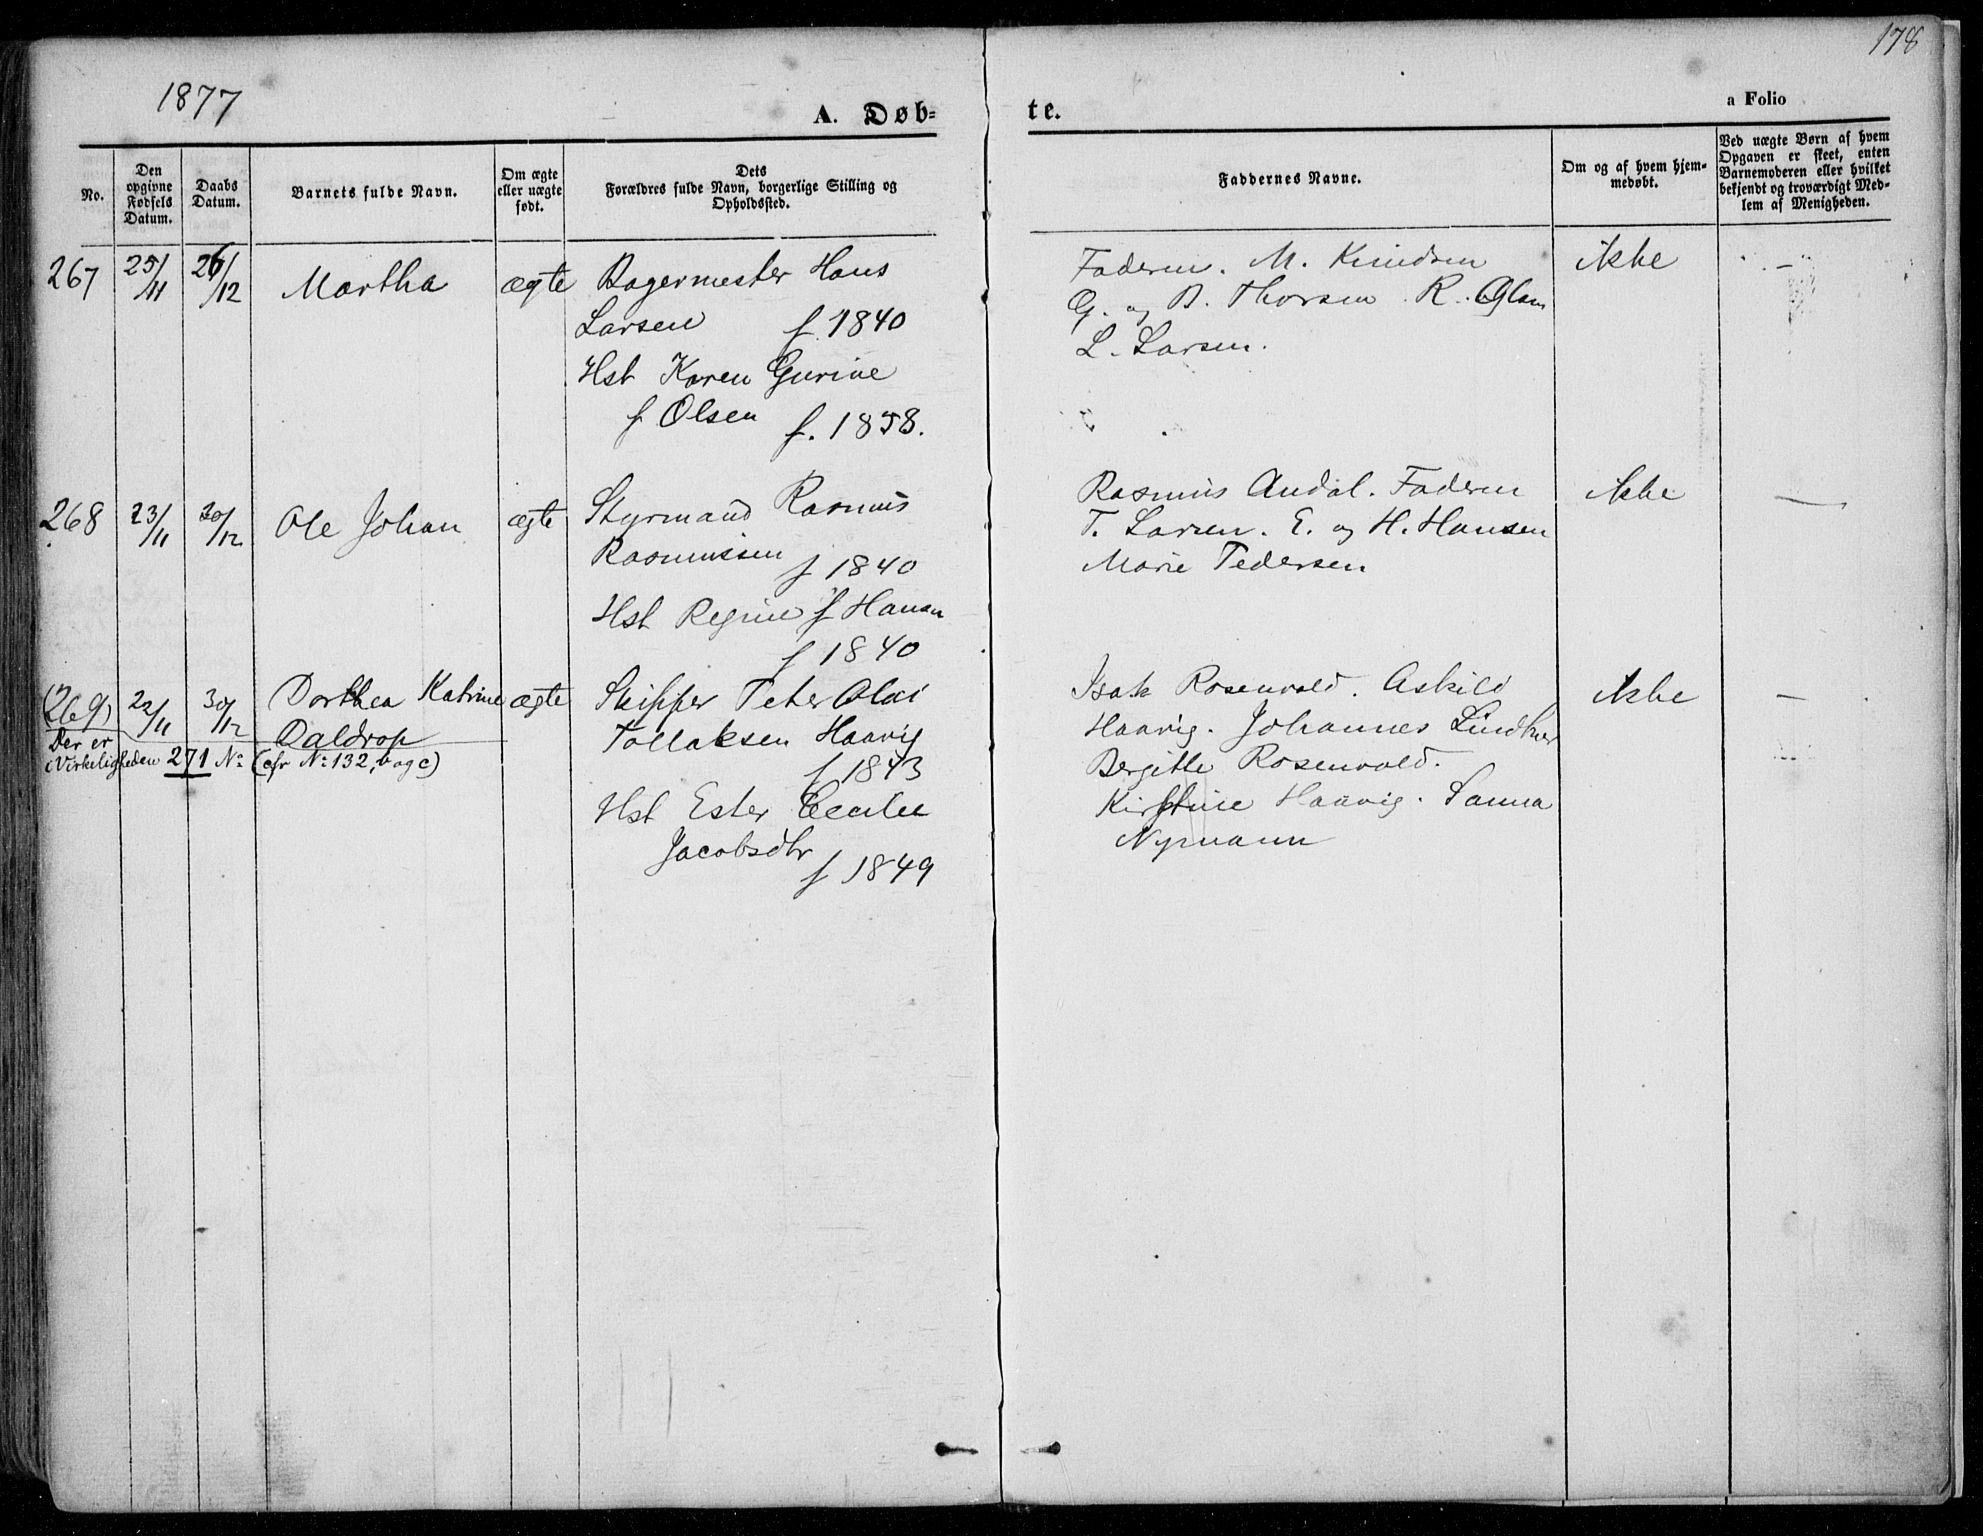 178
1877
A. Døb=
te.
a Folio
No.
Den
opgivne
Fødsels
Datum.
Daabs
Datum.
Barnets fulde Navn.
Om ægte
eller uægte
født.
Dets
Forældres fulde Navn, borgerlige Stilling og
Opholdssted.
Faddernes Navne.
Om og af hvem hjem-
medøbt.
Ved uægte Børn af hvem
Opgaven er skeet, enten
Barnemoderen eller hvilket
bekjendt og troværdigt Med-
lem af Menigheden.
267 25/11 26/12 Martha ægte
Bagermester Hans
Larsen f. 1840
Hst Karen Gurine
f Olsen f. 1858.
Faderen. M. Knudsen
G. og B. Thorsen. R.
L. Larsen.
ikke
268 23/11 30/12 Ole Johan ægte
Styrmand Rasmus
Rasmussen f 1840
Hst Regine f Hansen
f 1840
Rasmus Andal. Faderen
T. Larsen. E. og H. Hansen
Marie Pedersen
ikke
(269) 22/11 30/12 Dorthea Katrine ægte
Daldrop
Der er
i Virkeligheden 271 No: (cfr No: 132, b og c)
Skipper Peter Olai
Tollaksen Haavig
f 1843
Hst Ester Cecilie
Jacobsdtr
f 1849
Isak Rosenvold. Askild
Haavig. Johannes
Bergitte Rosenvold.
Kirstine Haavig. Sanna
Nymann
ikke